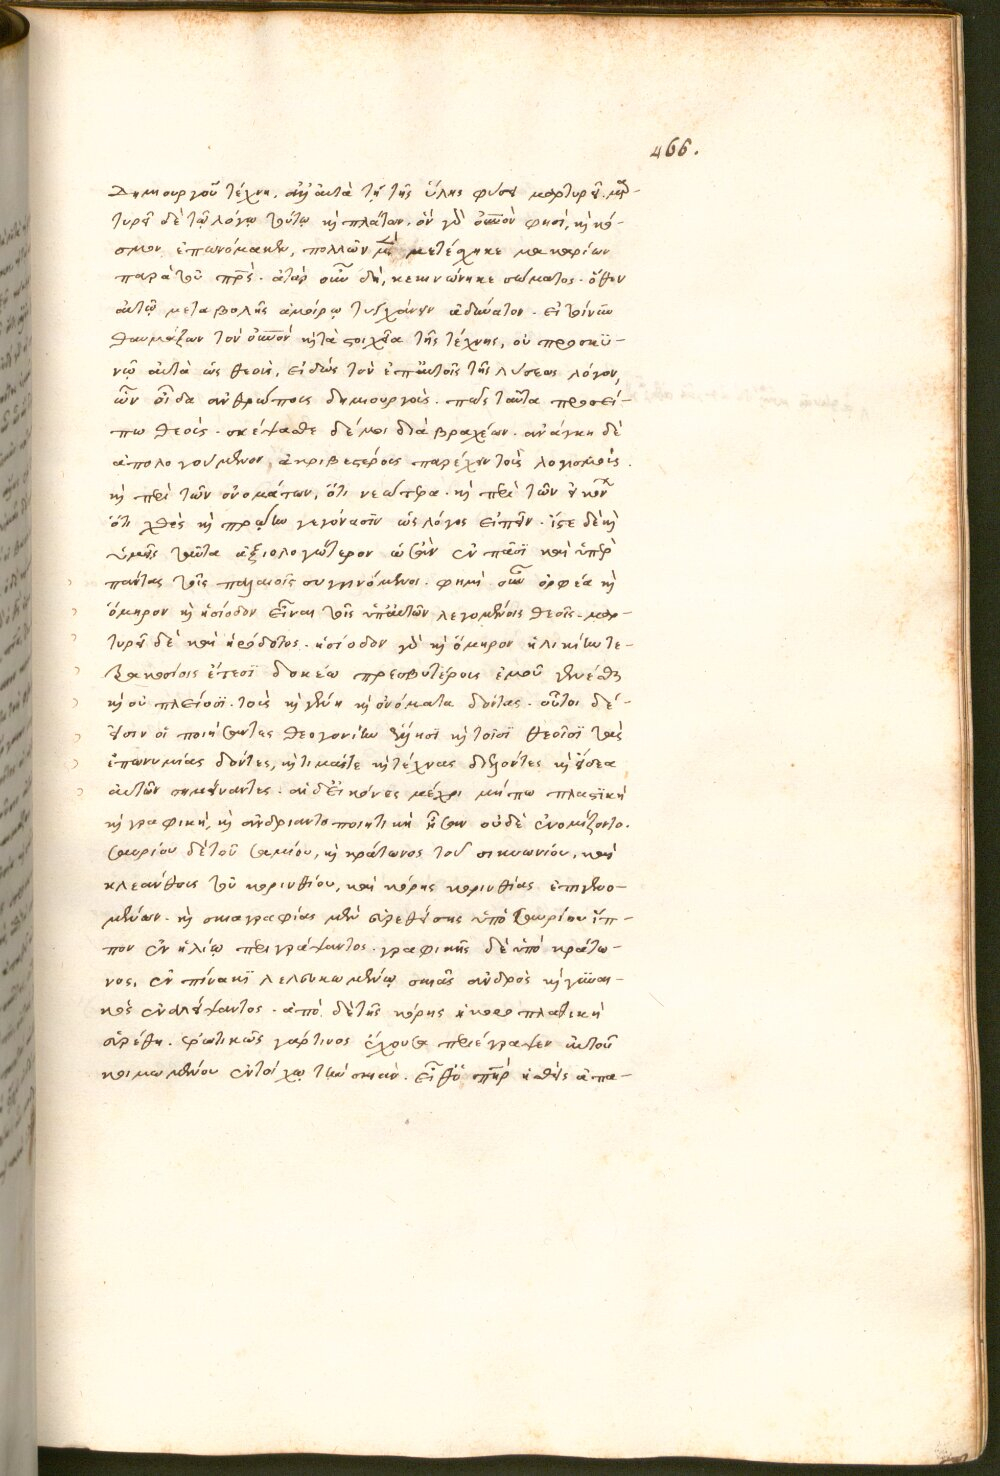 466.
Δημιουργοῦ τέχνη. οὐκ αὐτὰ τῇ τῆς ὕλης φύσει μαρτυρεῖ. μαρ-
τυρεῖ δὲ τῷ λόγῳ τούτῳ καὶ πλάτων. ὃν γὰρ οὐρανὸν φησὶ, καὶ κό-
σμον ἐπωνόμακεν, πολλῶν μὲν μετέσχηκε μακαρίων
παρὰ τοῦ πρς. ἀτὰρ οὖν δὴ, κεκινώνηκε σώματος. ὅθεν
αὐτῷ μεταβολῆς ἀμοίρῳ τυγχάνειν ἀδύνατον. εἰ τοίνυν
θαυμάζων τὸν οὐρανόν καὶ τὰ στοιχεῖα τῆς τέχνης, οὐ προσκυ-
νῶ αὐτὰ ὡς θεοὺς, εἰδὼς τὸν ἐπ' αὐτοῖς τῆς λύσεως λόγον,
ὧν οἶδα ἀνθρώπους δημιουργοὺς. πῶς ταῦτα προσεί-
πω θεοὺς. σκέψασθε δέ μοι διὰ βραχέων. ἀνάγκη δὲ
ἀπολογούμενον, ἀκριβεστέρους παρέχειν τοὺς λογισμοὺς.
καὶ περὶ τῶν ὀνομάτων, ὅτι νεώτερα. καὶ περὶ τῶν εἰκόνων
ὅτι χθὲς καὶ πρώην γεγόνασιν ὡς λόγος εἰπεῖν. ἴστε δὲ καὶ
ὑμεῖς ταῦτα ἀξιολογώτερον ὡς ἂν ἐν πᾶσι καὶ ὑπὲρ
πάντας τοῖς παλαιοῖς συγγινόμενοι. φημὶ οὖν ὀρφέα καὶ
ὅμηρον καὶ ἡσίοδον εἶναι τοὺς ὑπ' αὐτῶν λεγομένοις θεοῖς. μαρ-
τυρεῖ δὲ καὶ ἡρόδοτος. ἡσίοδον γὰρ καὶ ὅμηρον ἡλικίην τε-
τρακοσίοις ἔτεσι δοκέω πρεσβυτέρους ἐμοῦ γενέσθαι
καὶ οὐ πλείοσι. τοὺς καὶ γένη καὶ ὀνόματα δόντας. οὗτοι δέ-
εἰσιν οἱ ποιήσαντες θεογονίην ἕλλησι καὶ τοῖσι θεοῖσι τὰς
ἐπωνυμίας δόντες, καὶ τιμάς τε καὶ τέχνας διελόντες καὶ εἴδεα
αὐτῶν σημήναντες. αἱ δ' εἰκόνες μέχρι μήπω πλαστικὴ
καὶ γραφικὴ, καὶ ἀνδριαντοποιητικὴ ἦσαν οὐδὲ ἐνομίζοντο.
σαυρίου δὲ τοῦ σαμίου, καὶ κράτωνος τοῦ σικυωνίου, καὶ
κλεάνθους τοῦ κορινθίου, καὶ κόρης κορινθίας ἐπιγενο-
μένων. καὶ σκιαγραφίας μὲν εὑρεθείσης ὑπὸ σαυρίου ἵπ-
πον ἐν ἡλίῳ περιγράψαντος. γραφικῆς δὲ ὑπὸ κράτω-
νος, ἐν πίνακι λελευκωμένῳ σκιὰς ἀνδρὸς καὶ γυναι-
κὸς ἐναλείψαντος. ἀπὸ δὲ τῆς κόρης ἡ κοροπλαθικὴ
εὑρέθη. ἐρωτικῶς γάρ τινος ἔχουσα περιέγραψεν αὐτοῦ
κοιμωμένου ἐν τοίχῳ τὴν σκιὰν. εἶθ' ὁ πηρ ἡσθεὶς ἀπα-